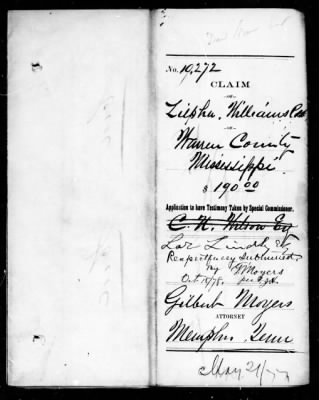 No. 19,272
CLAIM
OF
Zilpha Williams Col
OF
Warren County
Mississippi
$ 190.00
Application to have Testimony Taken by Special Commissioner.
C. W. Wilson Esq
Respectfully Submitted
by G Moyers
Oct. 15/78.
Gilbert Moyers
ATTORNEY
Memphis, Tenn
May 21/77